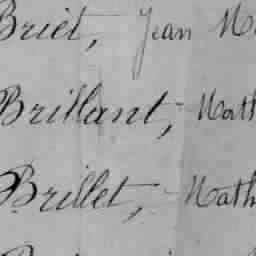 Briet, Jean M
Brillant, Math
Brillet, Math